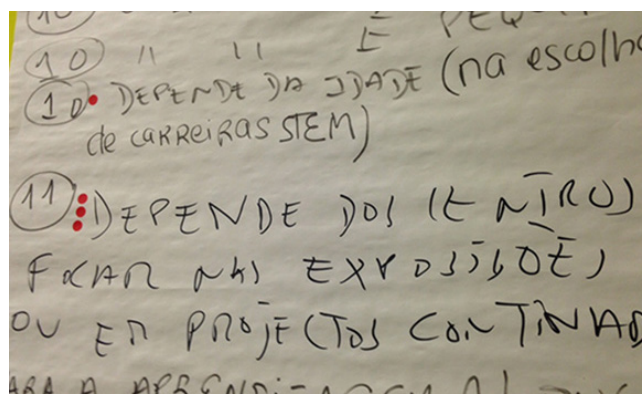 10 " " É PEQU
10 • DEPENDE DA IDADE (na escolha
de CARREIRAS STEM)
11 DEPENDE DOS CENTROS
FOCAR NAS EXPOSIÇÕES
OU EM PROJECTOS CONTINAD
ARA A APRENDIZAGEM AL